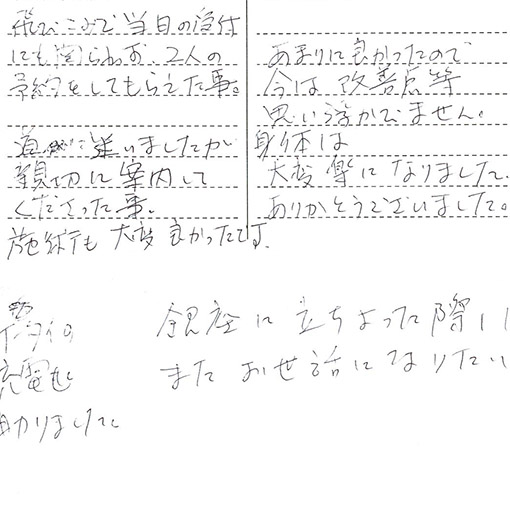 飛びこみで当日の受付
にも関らわず、2人の
予約をしてもらえた事。
道に迷いましたが
親切に案内して
くださった事。
施術も大変良かったです。
あまりに良かったので
今は改善点等
思い浮かびません。
身体は
大変楽になりました。
ありがとうございました。
ケータイの
充電も
助かりました。
銀座に立ちよった際に
またお世話になりたい